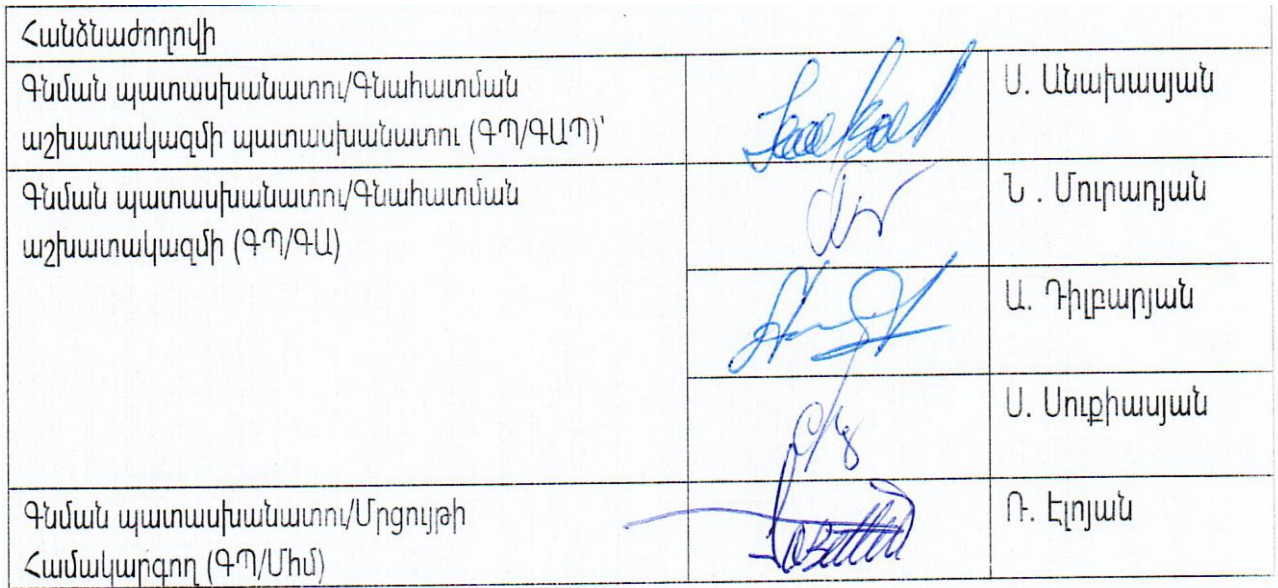 Հանձնաժողովի
Գնման պատասխանատու/Գնահատման
աշխատակազմի պատասխանատու (ԳՊ/ԳԱՊ)՝
Ս. Անախասյան
Գնման պատասխանատու/Գնահատման
աշխատակազմի (ԳՊ/ԳԱ)
Ն . Մուրադյան
Ա. Դիլբարյան
Ս. Սուքիասյան
Գնման պատասխանատու/Մրցույթի
Համակարգող (ԳՊ/Միմ)
Ռ. Էլոյան